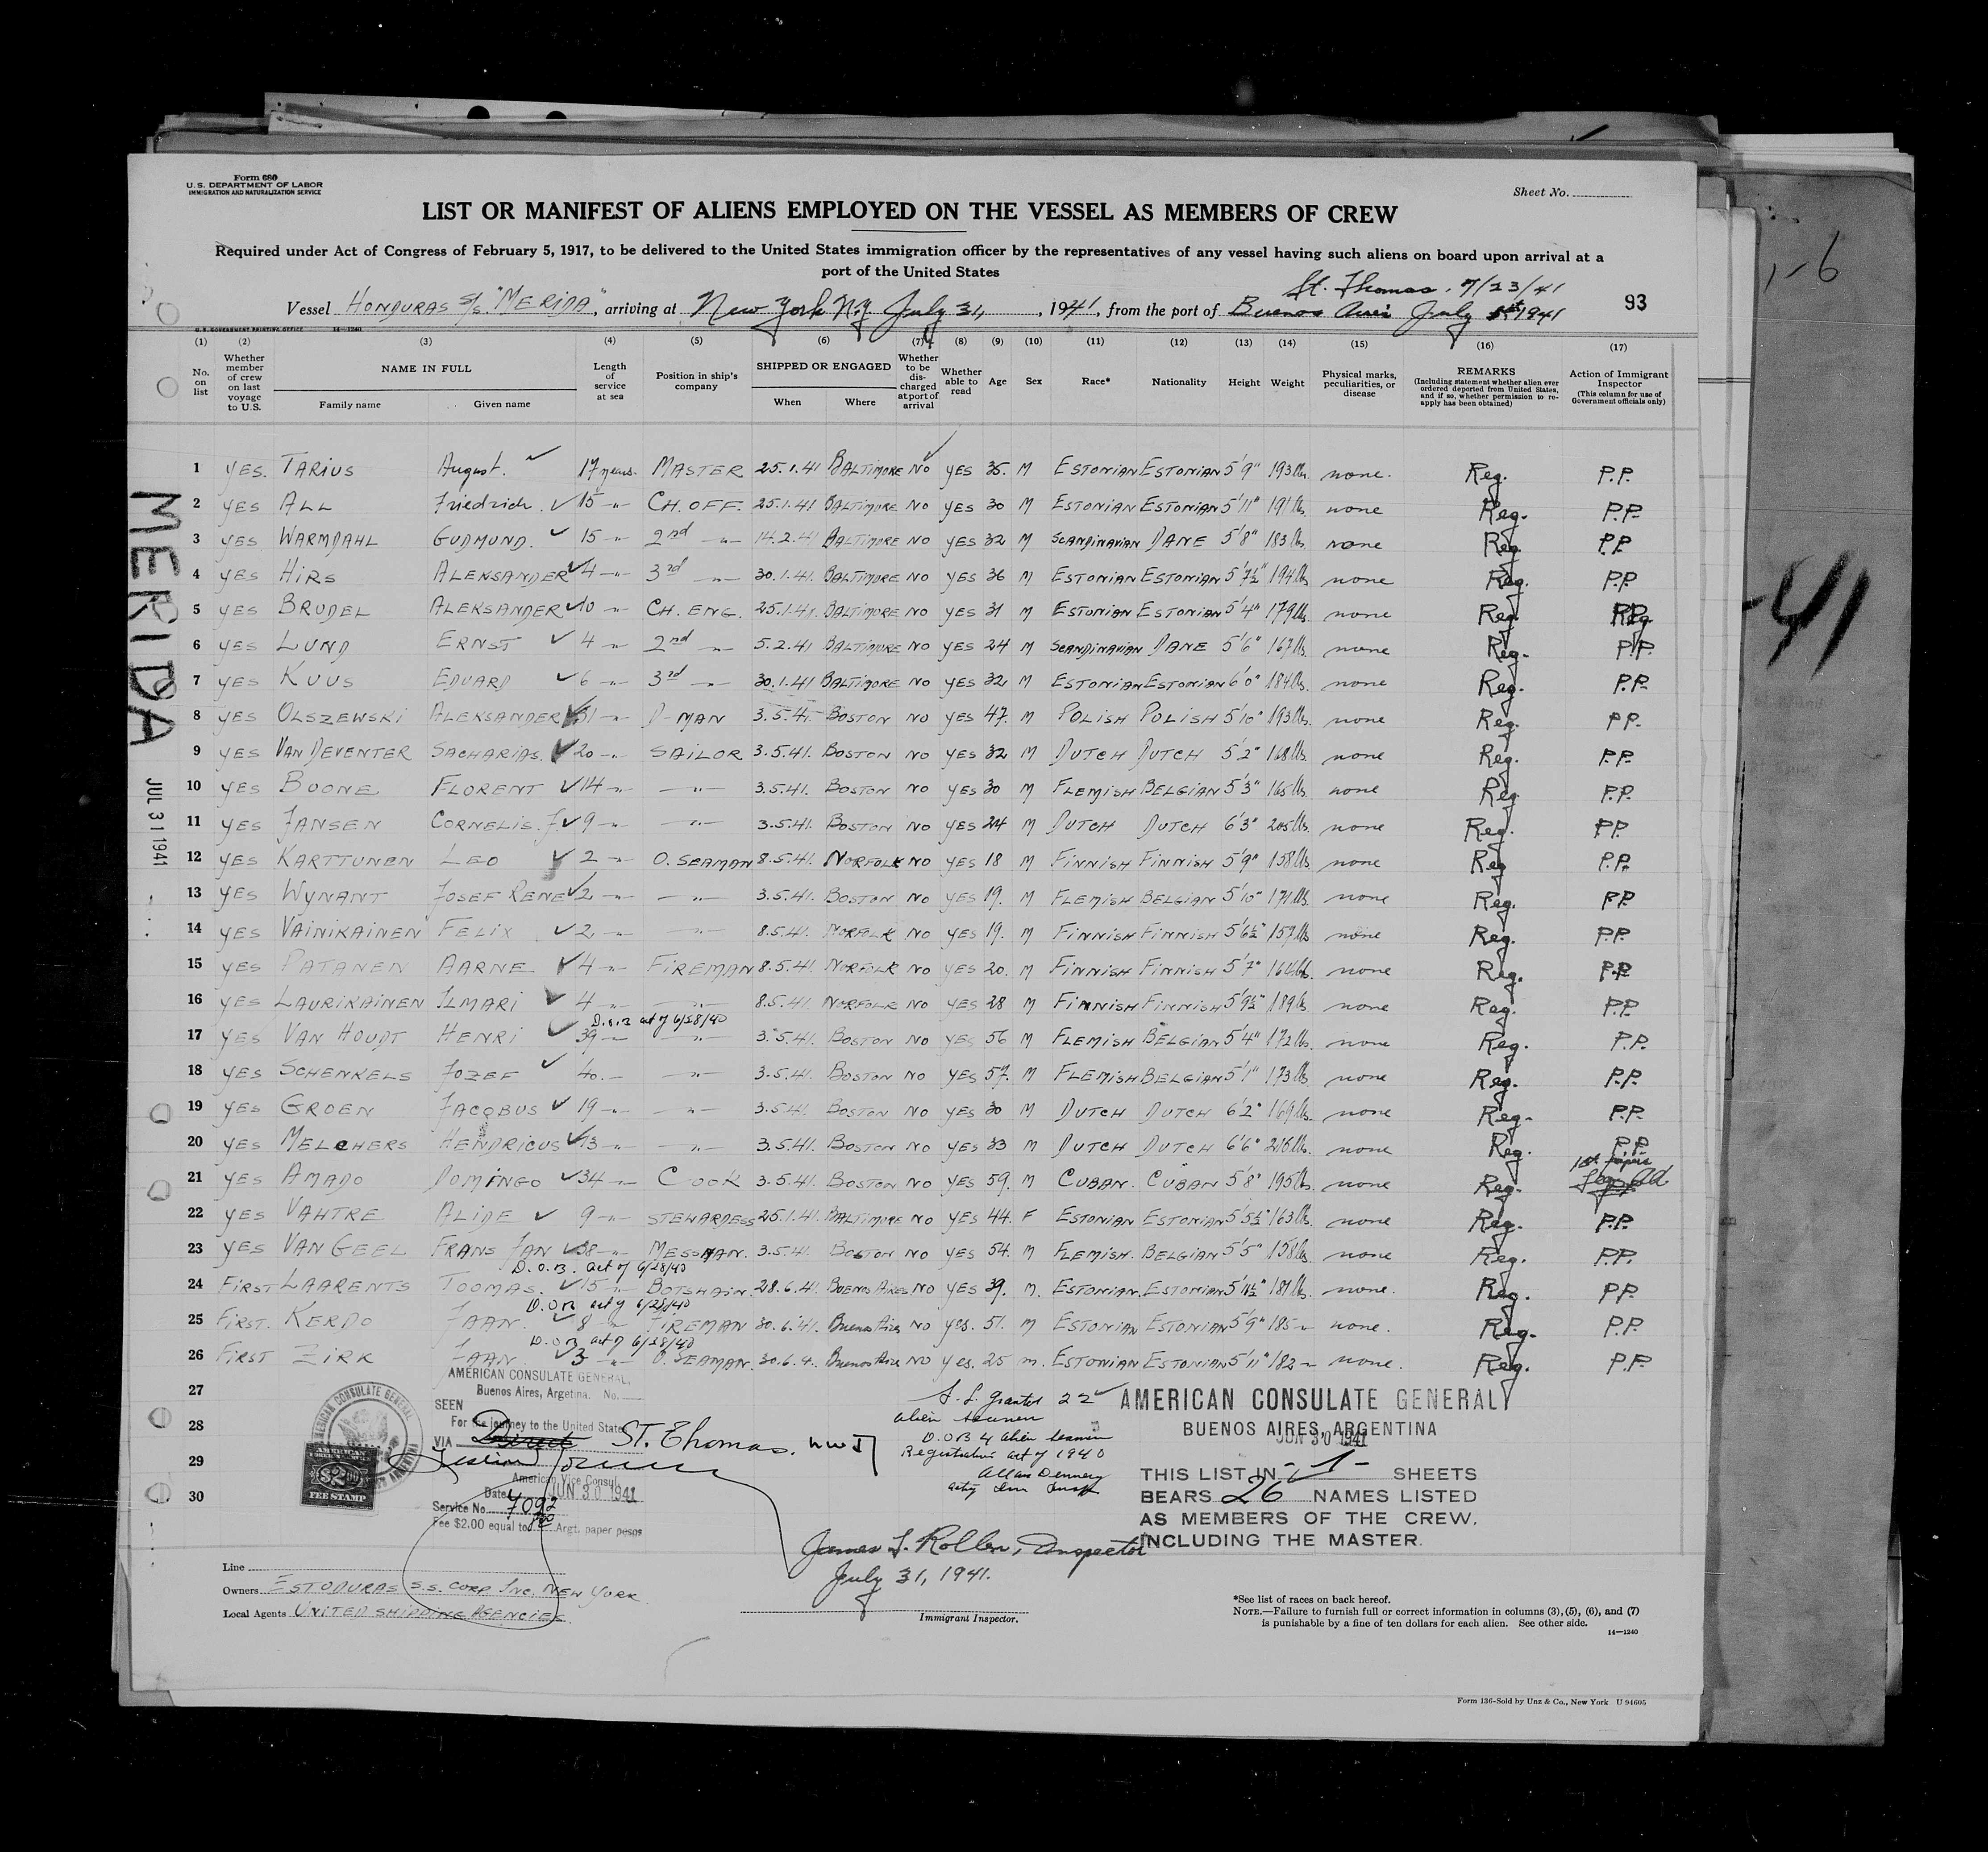 Form 680
U. S. DEPARTMENT OF LABOR
IMMIGRATION AND NATURALIZATION SERVICE
Sheet No.
LIST OR MANIFEST OF ALIENS EMPLOYED ON THE VESSEL AS MEMBERS OF CREW
Required under Act of Congress of February 5, 1917, to be delivered to the United States immigration officer by the representatives of any vessel having such aliens on board upon arrival at a
port of the United States
St. Thomas, 7/23/41
Vessel HONDURAS S/S. "MERIDA", arriving at New York N.Y. July 31, 1941, from the port of Buenos Aires July 1st 1941
93
U. S. GOVERNMENT PRINTING OFFICE 14—1240
(1) (2) (3) (4) (5) (6) (7) (8) (9) (10) (11) (12) (13) (14) (15) (16) (17)
No. on list Whether member of crew on last voyage to U.S. NAME IN FULL Family name Given name Length of service at sea Position in ship's company SHIPPED OR ENGAGED When Where Whether to be discharged at port of arrival Whether able to read Age Sex Race* Nationality Height Weight Physical marks, peculiarities, or disease REMARKS (Including statement whether alien ever ordered deported from United States, and if so, whether permission to reapply has been obtained) Action of Immigrant Inspector (This column for use of Government officials only)
1 YES. TARIUS August. 17 years. MASTER 25.1.41 BALTIMORE NO YES 35. M ESTONIAN ESTONIAN 5'9" 193 lbs. none. Reg. P.P.
2 YES ALL Friedrich. 15 -"- CH. OFF. 25.1.41 BALTIMORE NO YES 30 M ESTONIAN ESTONIAN 5'11" 191 lbs. none Reg. P.P.
3 YES WARMDAHL GUDMUND. 15 -"- 2nd -"- 14.2.41 BALTIMORE NO YES 32 M SCANDINAVIAN DANE 5'8" 183 lbs. none Reg. P.P.
4 YES HIRS ALEKSANDER 4 -"- 3rd -"- 30.1.41. BALTIMORE NO YES 36 M ESTONIAN ESTONIAN 5'7½" 194 lbs. none Reg. P.P.
5 YES BRUDEL ALEKSANDER 10 -"- CH. ENG. 25.1.41. BALTIMORE NO YES 31 M ESTONIAN ESTONIAN 5'4" 179 lbs. none Reg.
6 YES LUND ERNST 4 -"- 2nd -"- 5.2.41 BALTIMORE NO YES 24 M SCANDINAVIAN DANE 5'6" 167 lbs. none Reg. P.P.
7 YES KUUS EDUARD 6 -"- 3rd -"- 30.1.41 BALTIMORE NO YES 32 M ESTONIAN ESTONIAN 6'0" 184 lbs. none Reg. P.P.
8 YES OLSZEWSKI ALEKSANDER 31 -"- D-MAN 3.5.41. BOSTON NO YES 47. M POLISH POLISH 5'10" 193 lbs. none Reg. P.P.
9 YES VAN DEVENTER SACHARIAS. 20 -"- SAILOR 3.5.41. BOSTON NO YES 32 M DUTCH DUTCH 5'2" 168 lbs. none Reg. P.P.
10 YES BOONE FLORENT 14 -"- -"- 3.5.41. BOSTON NO YES 30 M FLEMISH BELGIAN 5'3" 165 lbs. none Reg P.P.
11 YES JANSEN CORNELIS. J. 9 -"- -"- 3.5.41. BOSTON NO YES 24 M DUTCH DUTCH 6'3" 205 lbs. none Reg. P.P.
12 YES KARTTUNEN LEO 2 -"- O. SEAMAN 8.5.41. NORFOLK NO YES 18 M FINNISH FINNISH 5'9" 158 lbs none Reg P.P.
13 YES WYNANT JOSEF RENE 2 -"- -"- 3.5.41. BOSTON NO YES 19. M FLEMISH BELGIAN 5'10" 171 lbs. none Reg. P.P.
14 YES VAINIKAINEN FELIX 2 -"- -"- 8.5.41. NORFOLK NO YES 19. M FINNISH FINNISH 5'6½" 157 lbs none Reg. P.P.
15 YES PATANEN AARNE 4 -"- FIREMAN 8.5.41. NORFOLK NO YES 20. M FINNISH FINNISH 5'7" 164 lbs. none Reg. P.P.
16 YES LAURIKAINEN ILMARI 4 -"- -"- 8.5.41 NORFOLK NO YES 28 M FINNISH FINNISH 5'9½" 189 lbs none Reg. P.P.
D.O.B act of 6/28/40
17 YES VAN HOUDT HENRI 39 -"- -"- 3.5.41. BOSTON NO YES 56 M FLEMISH BELGIAN 5'4" 172 lbs. none Reg. P.P.
18 YES SCHENKELS JOZEF 40. -"- -"- 3.5.41. BOSTON NO YES 57. M FLEMISH BELGIAN 5'1" 173 lbs. none Reg. P.P.
19 YES GROEN JACOBUS 19 -"- -"- 3.5.41. BOSTON NO YES 30 M DUTCH DUTCH 6'2" 169 lbs. none Reg. P.P.
20 YES MELCHERS HENDRICUS 13 -"- -"- 3.5.41. BOSTON NO YES 33 M DUTCH DUTCH 6'6" lbs. none Reg. P.P.
1st papers
21 YES AMADO DOMINGO 34 -"- COOK 3.5.41. BOSTON NO YES 59. M CUBAN. CUBAN 5'8" 195 lbs. none Reg.
22 YES VAHTRE ALIDE 9 -"- STEWARDESS 25.1.41. BALTIMORE NO YES 44. F ESTONIAN ESTONIAN 5'5½" 163 lbs. none Reg. P.P.
23 YES VAN GEEL FRANS JAN 38 -"- MESSMAN. 3.5.41. BOSTON NO YES 54. M FLEMISH. BELGIAN 5'5" 158 lbs. none Reg. P.P.
D.O.B. act of 6/28/40
24 FIRST LAARENTS TOOMAS. 15 -"- BOTSWAIN. 28.6.41. BUENOS AIRES NO YES 39. M. ESTONIAN. ESTONIAN 5'11½" 181 lbs. none. Reg. P.P.
D.O.B act of 6/28/40
25 FIRST. KERDO JAAN. 8 -"- FIREMAN 30.6.41. Buenos Aires NO yes. 51. M ESTONIAN ESTONIAN 5'9" 185 -"- none. Reg. P.P.
D.O.B act of 6/28/40
26 FIRST ZIRK JAAN 3 -"- O. SEAMAN. 30.6.4. Buenos Aires NO yes. 25 m. ESTONIAN ESTONIAN 5'11" 182 -"- none. Reg. P.P.
27
28
29
30
MERIDA
JUL 31 1941
AMERICAN CONSULATE GENERAL,
Buenos Aires, Argetina. No.
SEEN
For the journey to the United States
VIA Direct ST. Thomas.
American Vice Consul.
Date JUN 30 1941
Service No. 7092
Fee $2.00 equal to Argt. paper pesos
AMERICAN CONSULATE GENERAL
$2.00
FEE STAMP
S.L. granted 22
alien seamen
D.O.B 4 alien seamen
Registration act of 1940
AMERICAN CONSULATE GENERAL
BUENOS AIRES, ARGENTINA
JUN 30 1941
THIS LIST IN -1- SHEETS
BEARS 26 NAMES LISTED
AS MEMBERS OF THE CREW,
INCLUDING THE MASTER.
James J. Rollen, Inspector
July 31, 1941.
Immigrant Inspector.
Line
Owners ESTODURAS S.S. CORP. INC. NEW YORK
Local Agents UNITED SHIPPING AGENCIES.
*See list of races on back hereof.
NOTE.—Failure to furnish full or correct information in columns (3), (5), (6), and (7)
is punishable by a fine of ten dollars for each alien. See other side.
14—1240
Form 136-Sold by Unz & Co., New York U 94605
-41